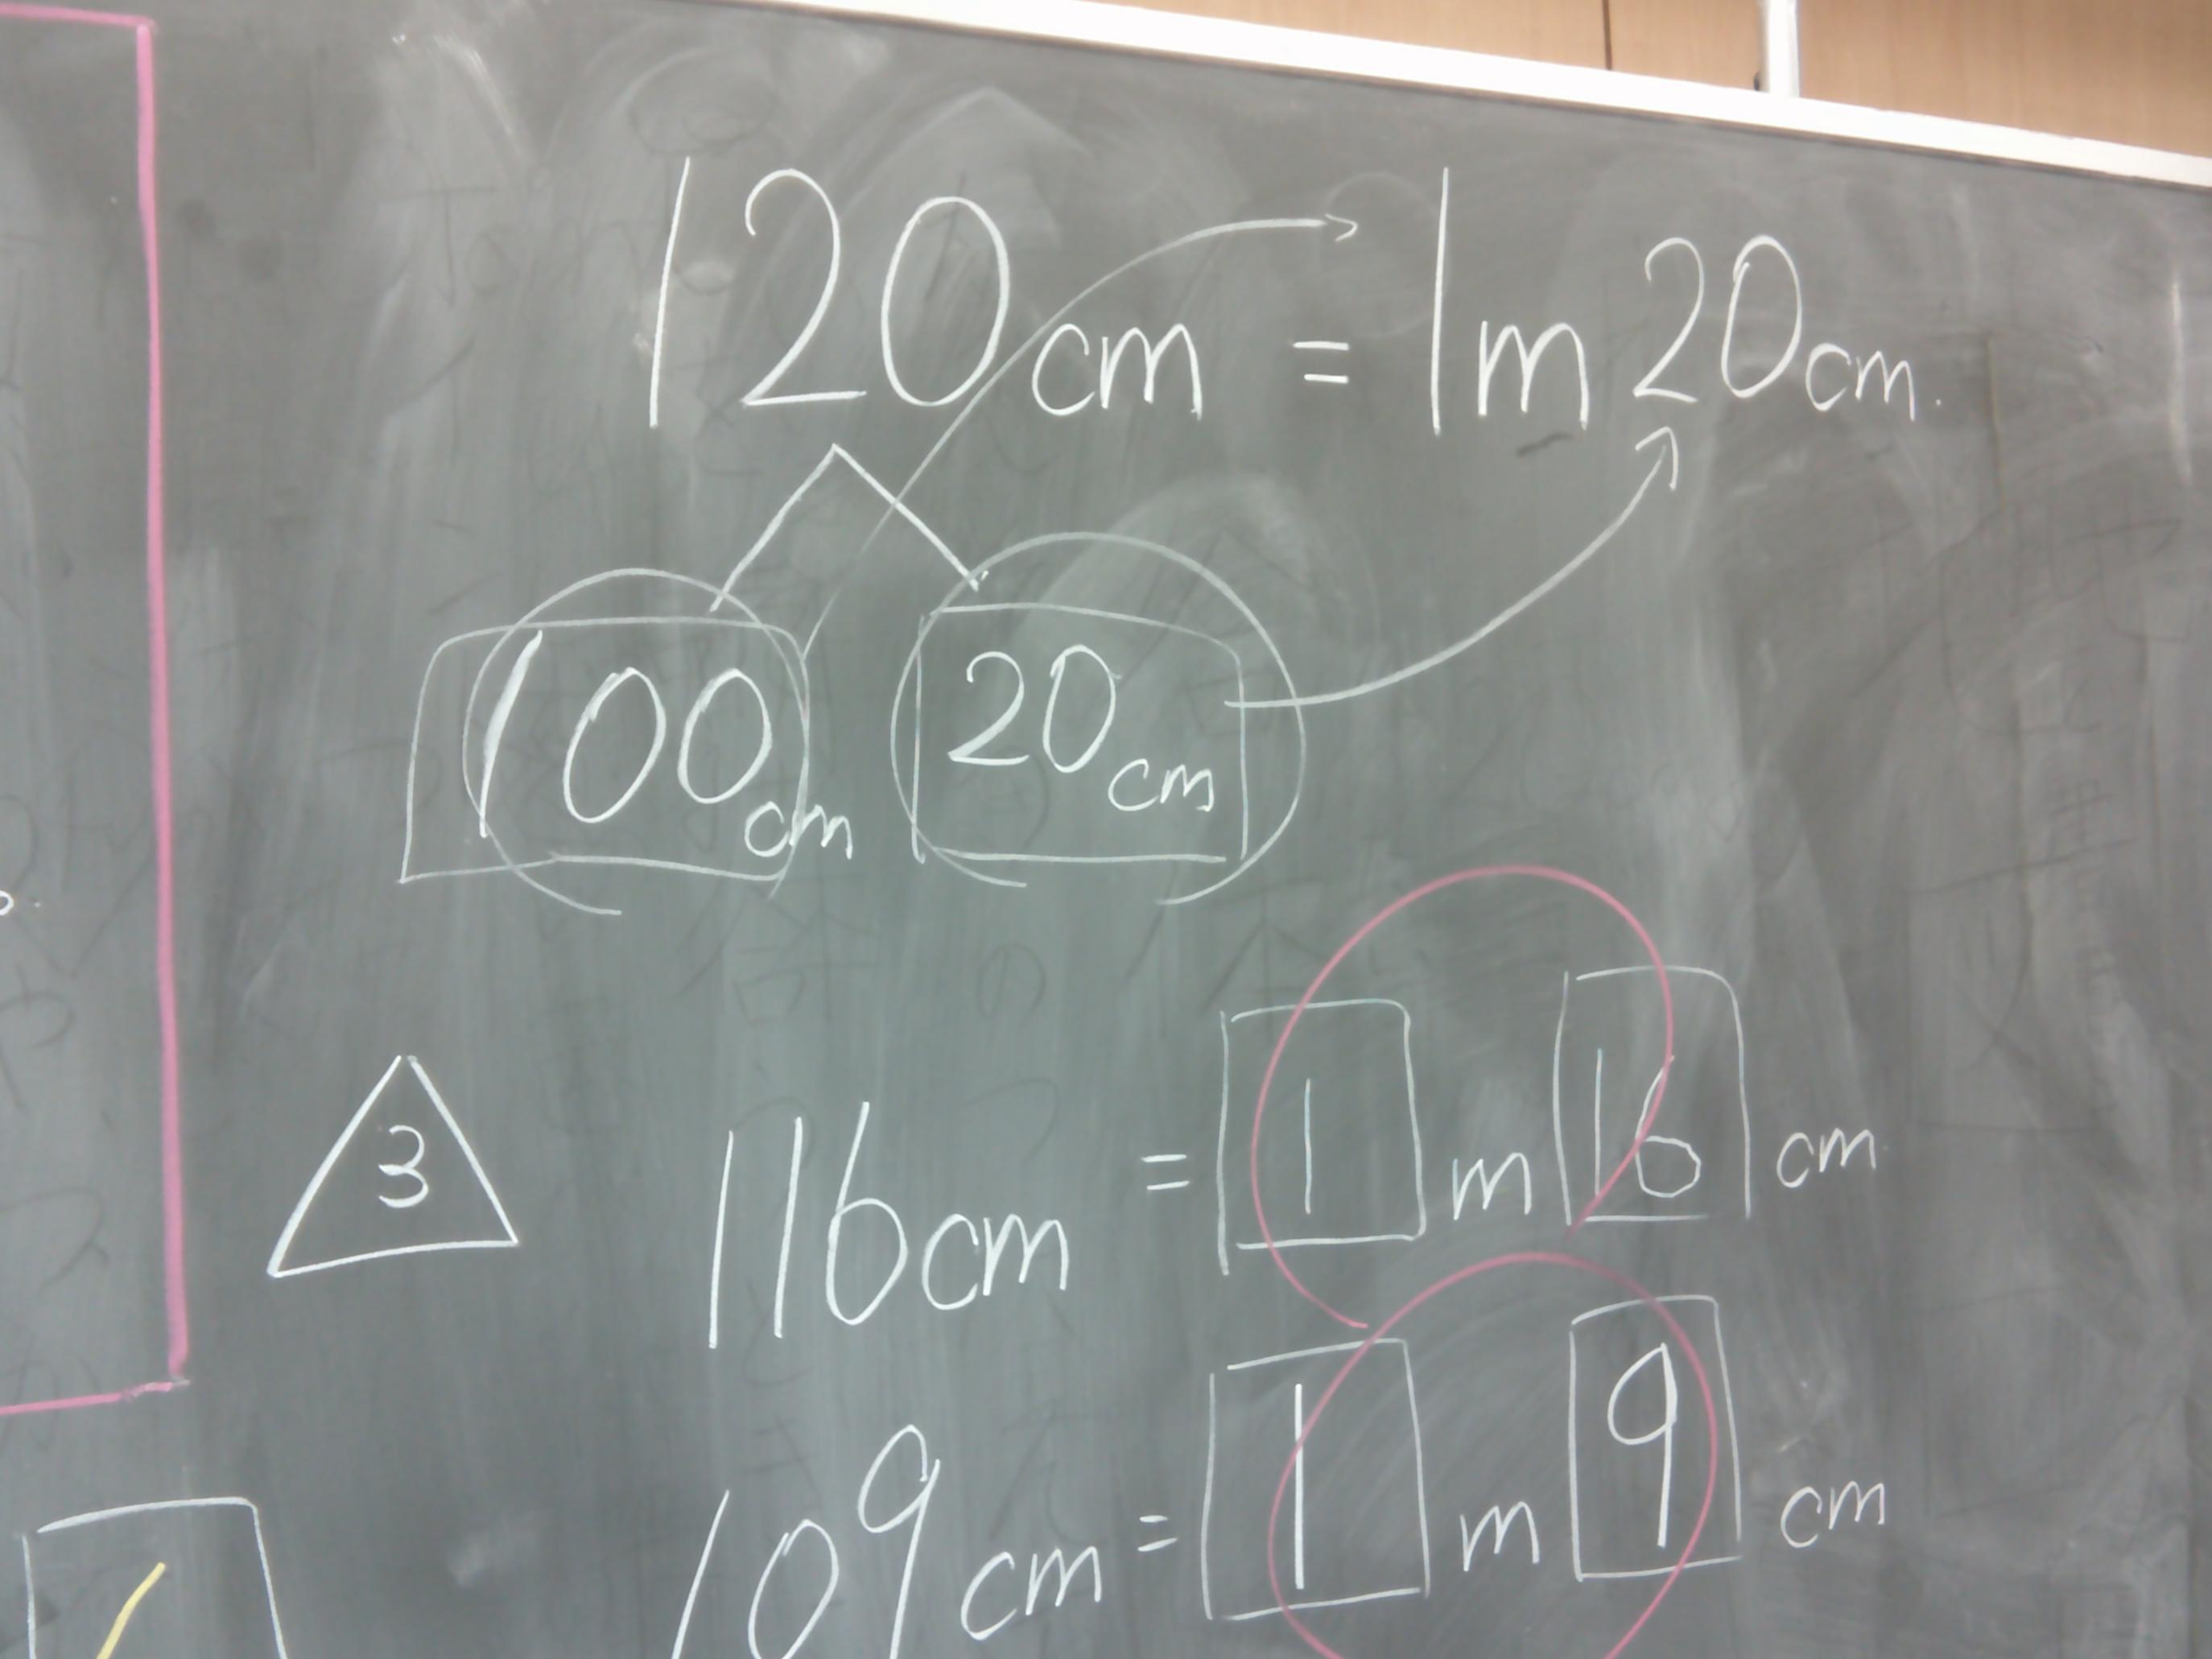 120cm = 1m 20cm.
100cm 20cm
3 116cm = 1 m 16 cm
109cm = 1 m 9 cm